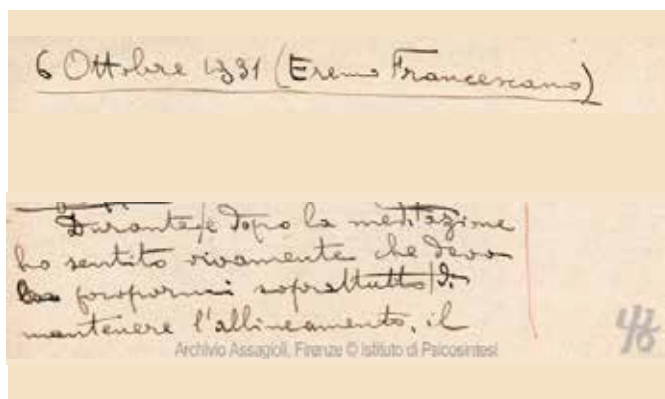 6 Ottobre 1931 (Eremo Francescano)
Durante e dopo la meditazione
ho sentito vivamente che devo
propormi soprattutto di
mantenere l'allineamento, il
Archivio Assagioli, Firenze © Istituto di Psicosintesi
46